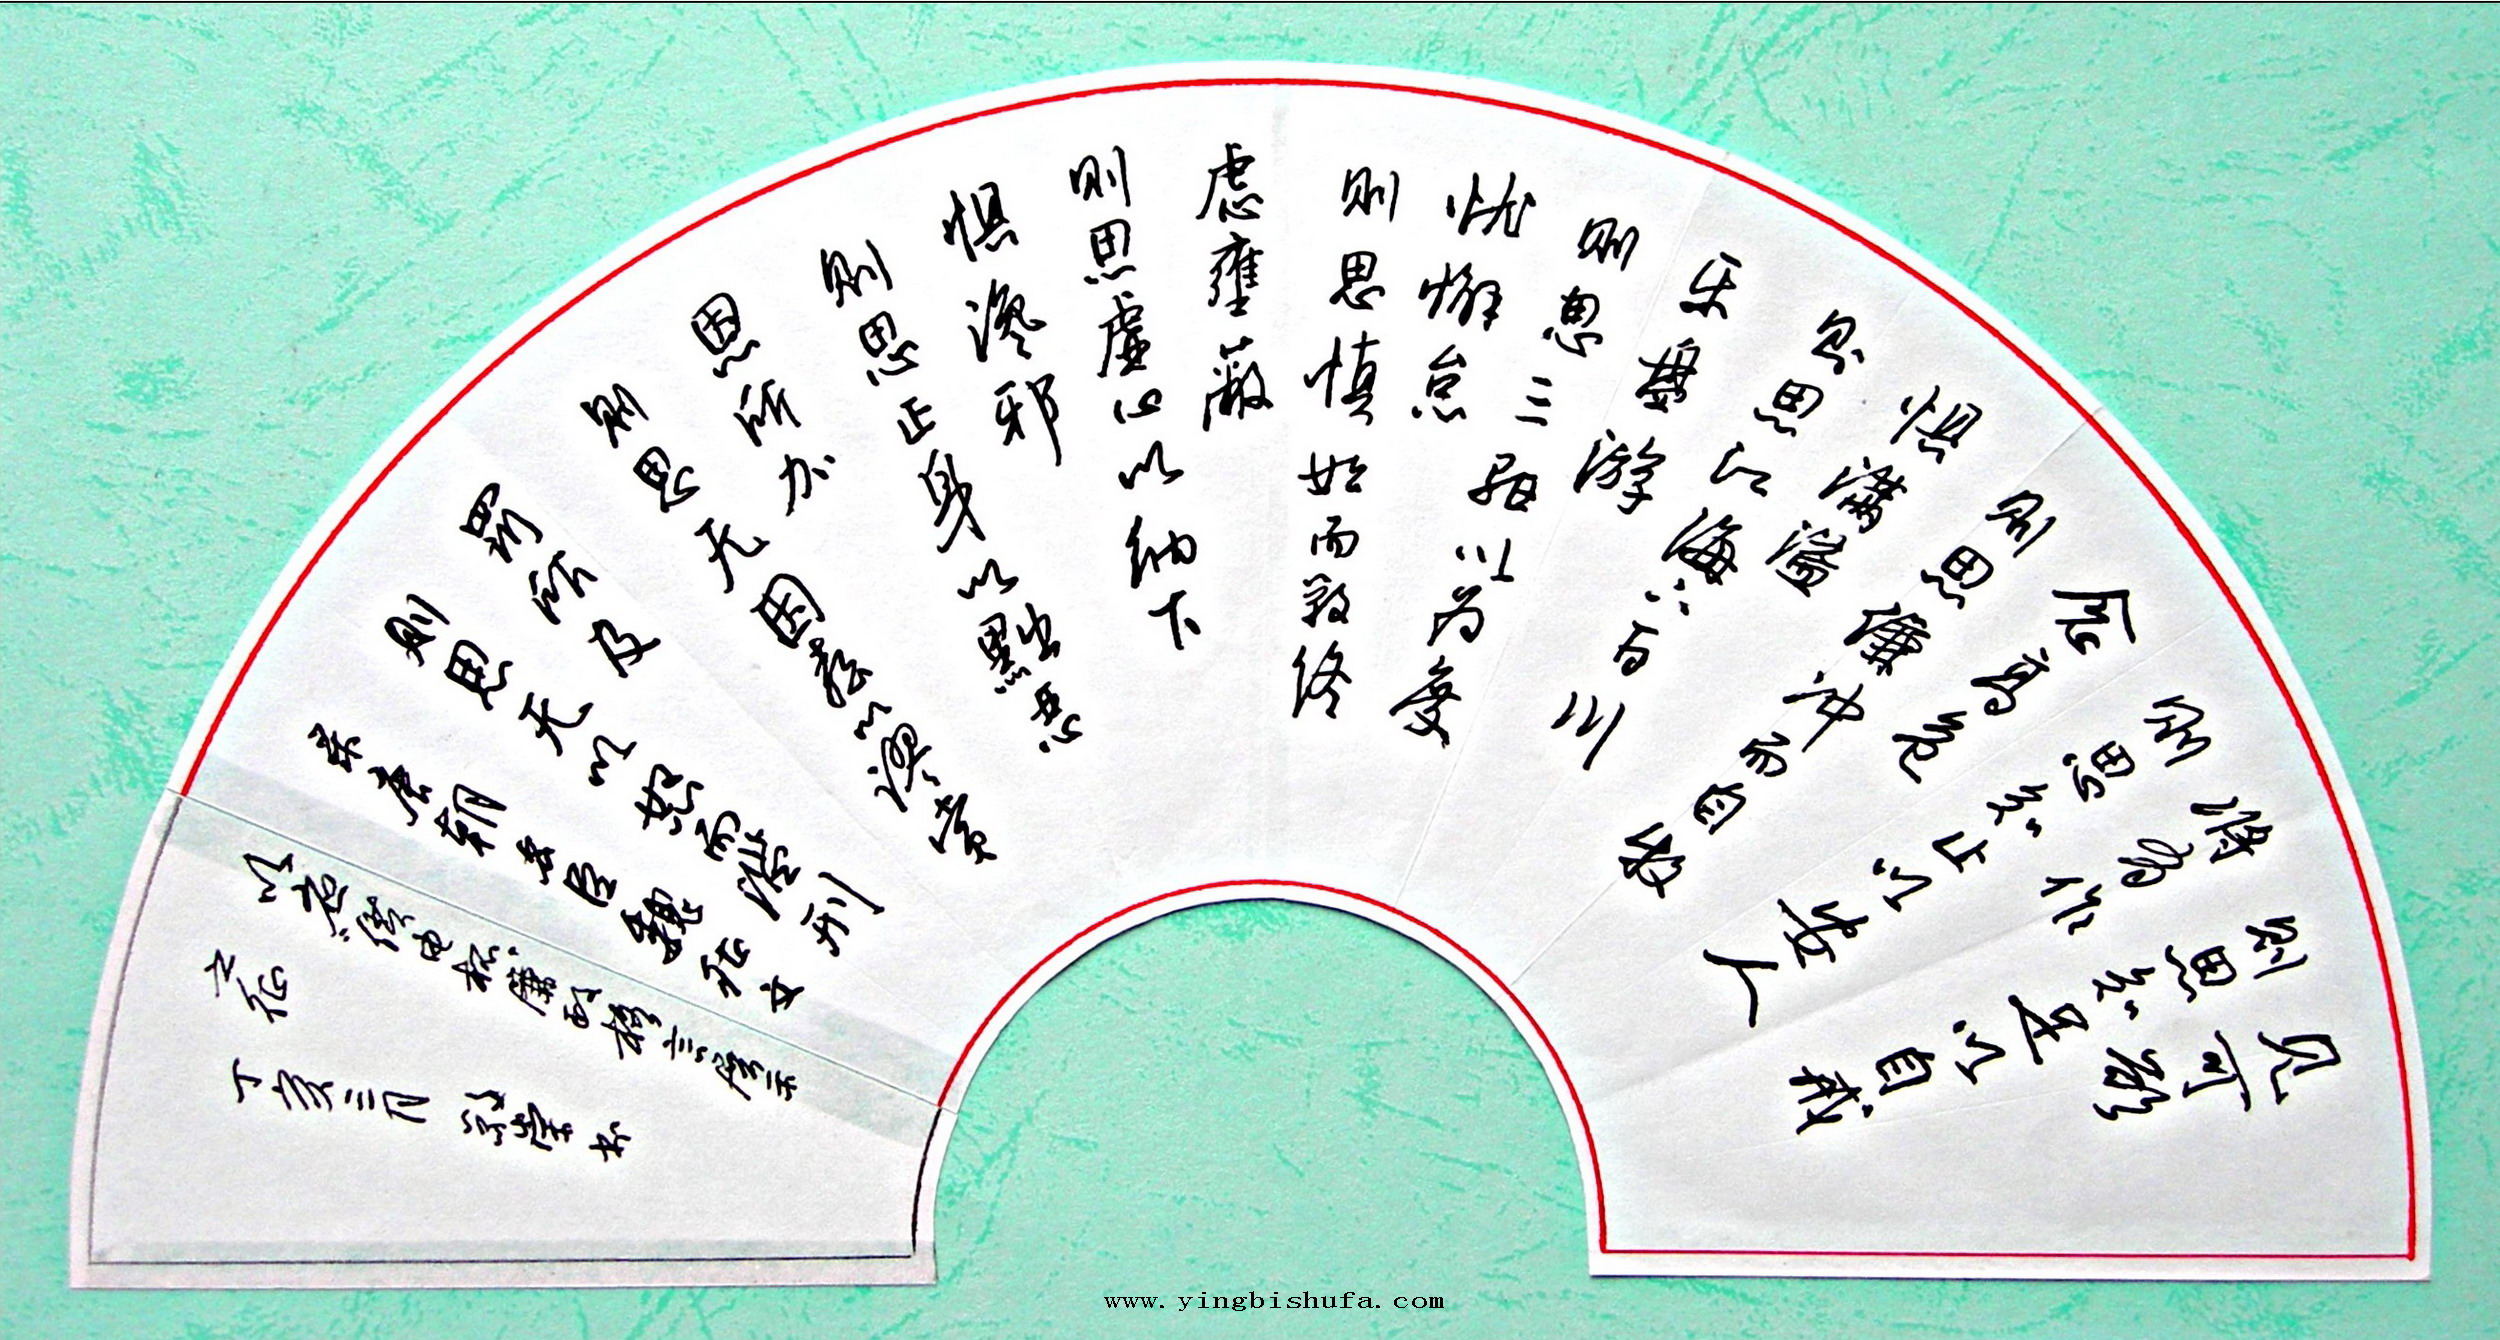 见可欲
则思知足以自戒
将有作
则思知止以安人
念高危
则思谦冲而自牧
惧满溢
则思江海下百川
乐盘游
则思三驱以为度
忧懈怠
则思慎始而敬终
虑壅蔽
则思虚心以纳下
惧谗邪
则思正身以黜恶
恩所加
则思无因喜以谬赏
罚所及
则思无以怒而滥刑
录唐朝臣魏征文
丁亥三月
www.yingbishufa.com